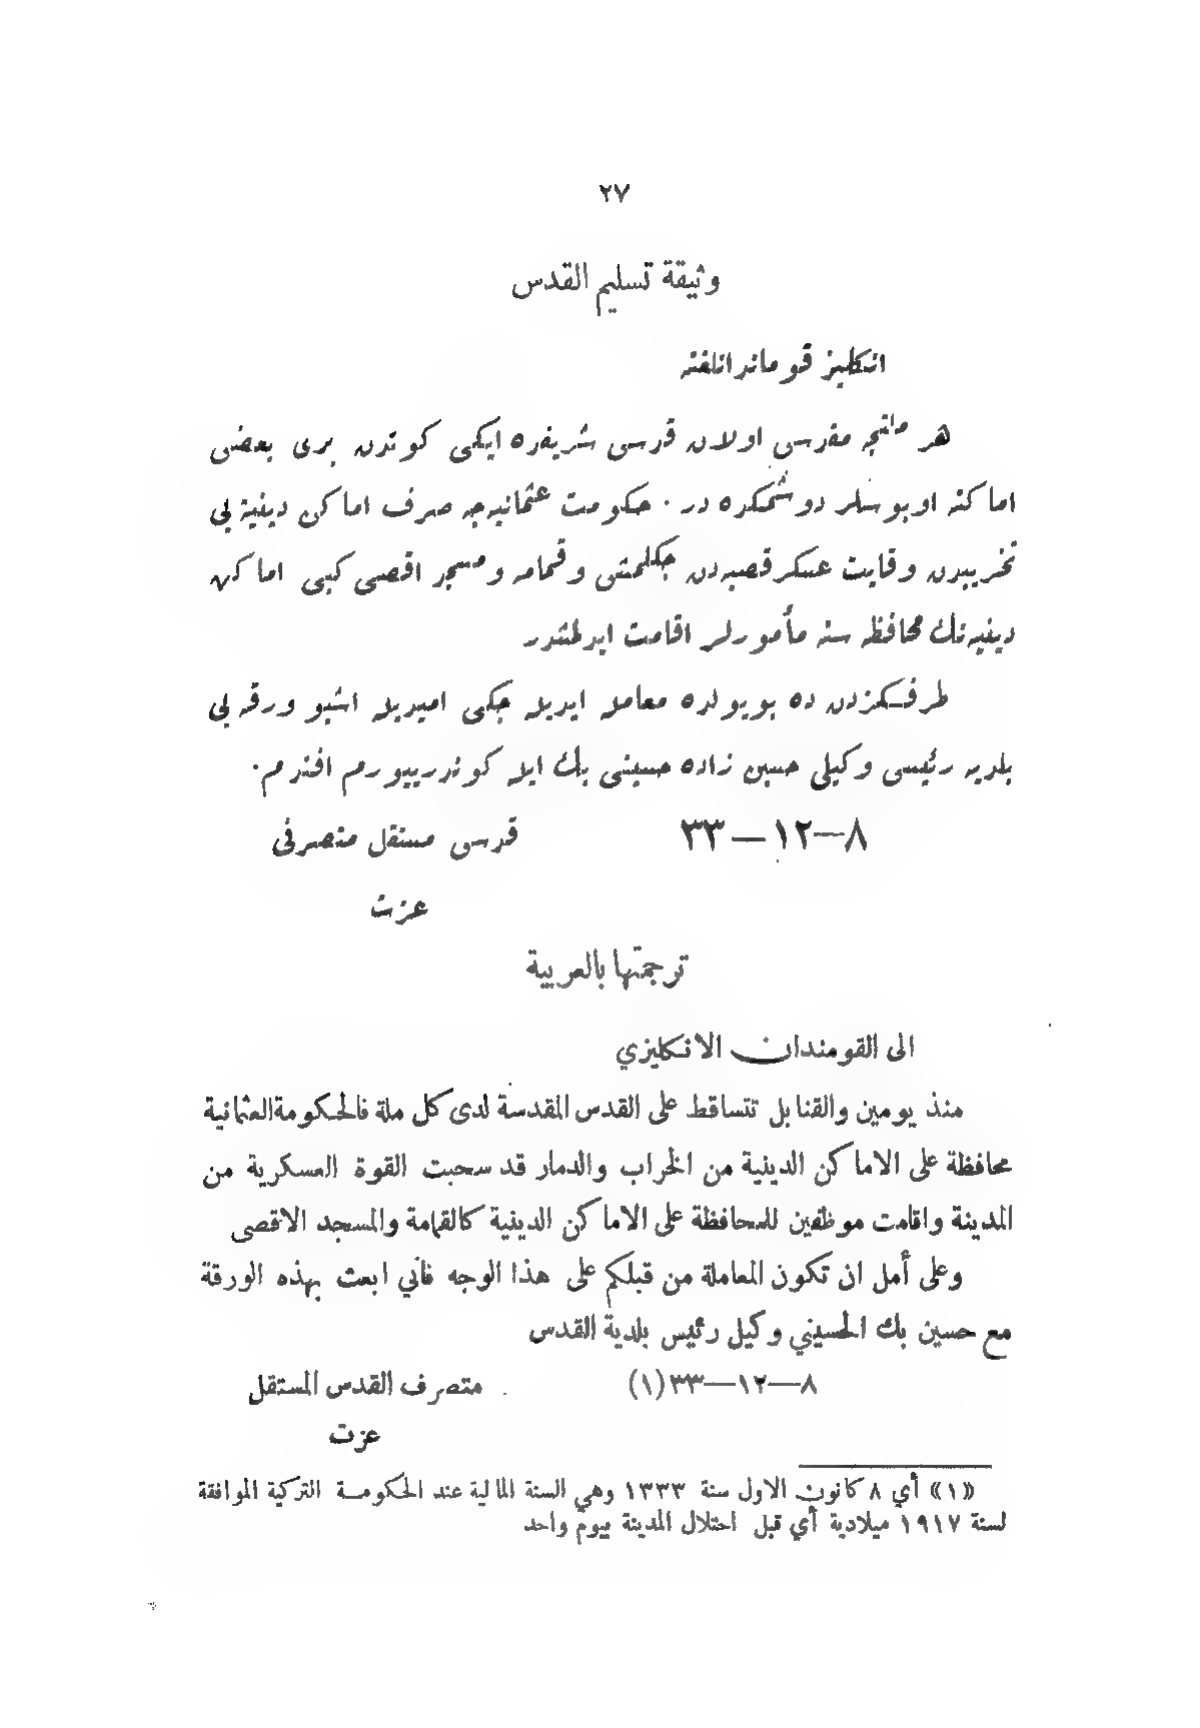 ٢٧
وثيقة تسليم القدس
انكليز قوماندانلغنه
هر ملتجه مقدس اولان قدس شريفده ايكى كوندن برى بعض
اماكنه اوبوسلر دوشمكده در. حكومت عثمانيه‌جه صرف اماكن دينية يى
تخريبدن وقايت عسكر قصبه‌دن چكلمش وقمامه ومسجد اقصى كبى اماكن
دينيه‌نك محافظه سنه مأمورلر اقامت ايدلمشدر
طرفكزدن ده بويولده معامله ايديله جكى اميديله اشبو ورقه يى
بلديه رئيسى وكيلى حسين زاده حسينى بك ايله كوندرييورم افندم.
٨—١٢—٣٣ قدس مستقل متصرفى
عزت
ترجمتها بالعربية
الى القومندان الانكليزي
منذ يومين والقنابل تتساقط على القدس المقدسة لدى كل ملة فالحكومة العثمانية
محافظة على الاماكن الدينية من الخراب والدمار قد سحبت القوة العسكرية من
المدينة واقامت موظفين للمحافظة على الاماكن الدينية كالقمامة والمسجد الاقصى
وعلى أمل ان تكون المعاملة من قبلكم على هذا الوجه فاني ابعث بهذه الورقة
مع حسين بك الحسيني وكيل رئيس بلدية القدس
٨—١٢—٣٣ (١) متصرف القدس المستقل
عزت
«١» أي ٨ كانون الاول سنة ١٣٣٣ وهي السنة المالية عند الحكومة التركية الموافقة
لسنة ١٩١٧ ميلادية أي قبل احتلال المدينة بيوم واحد